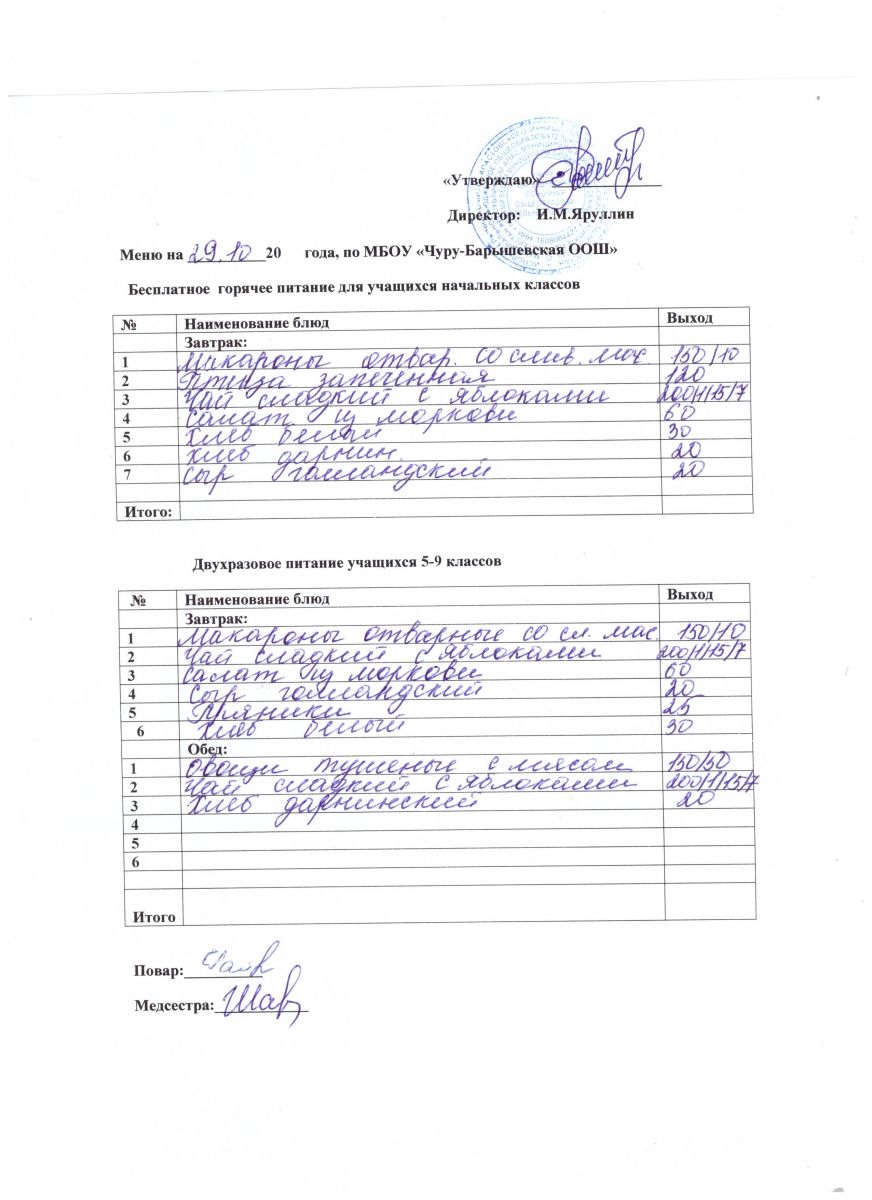 «Утверждаю»
Директор: И.М.Яруллин
Меню на 29.10 20 года, по МБОУ «Чуру-Барышевская ООШ»
Бесплатное горячее питание для учащихся начальных классов
№ Наименование блюд Выход
Завтрак:
1 Макароны отвар. со слив. мас. 150/10
2 Птица запеченная 120
3 Чай сладкий с яблоками 200/1/15/7
4 Салат из моркови 60
5 Хлеб белый 30
6 Хлеб дарнин. 20
7 Сыр голландский 20
Итого:
Двухразовое питание учащихся 5-9 классов
№ Наименование блюд Выход
Завтрак:
1 Макароны отварные со сл. мас. 150/10
2 Чай сладкий с яблоками 200/1/15/7
3 Салат из моркови 60
4 Сыр голландский 20
5 Пряники 25
6 Хлеб белый 30
Обед:
1 Овощи тушеные с мясом 150/50
2 Чай сладкий с яблоками 200/1/15/7
3 Хлеб дарнинский 20
4
5
6
Итого
Повар:
Медсестра: